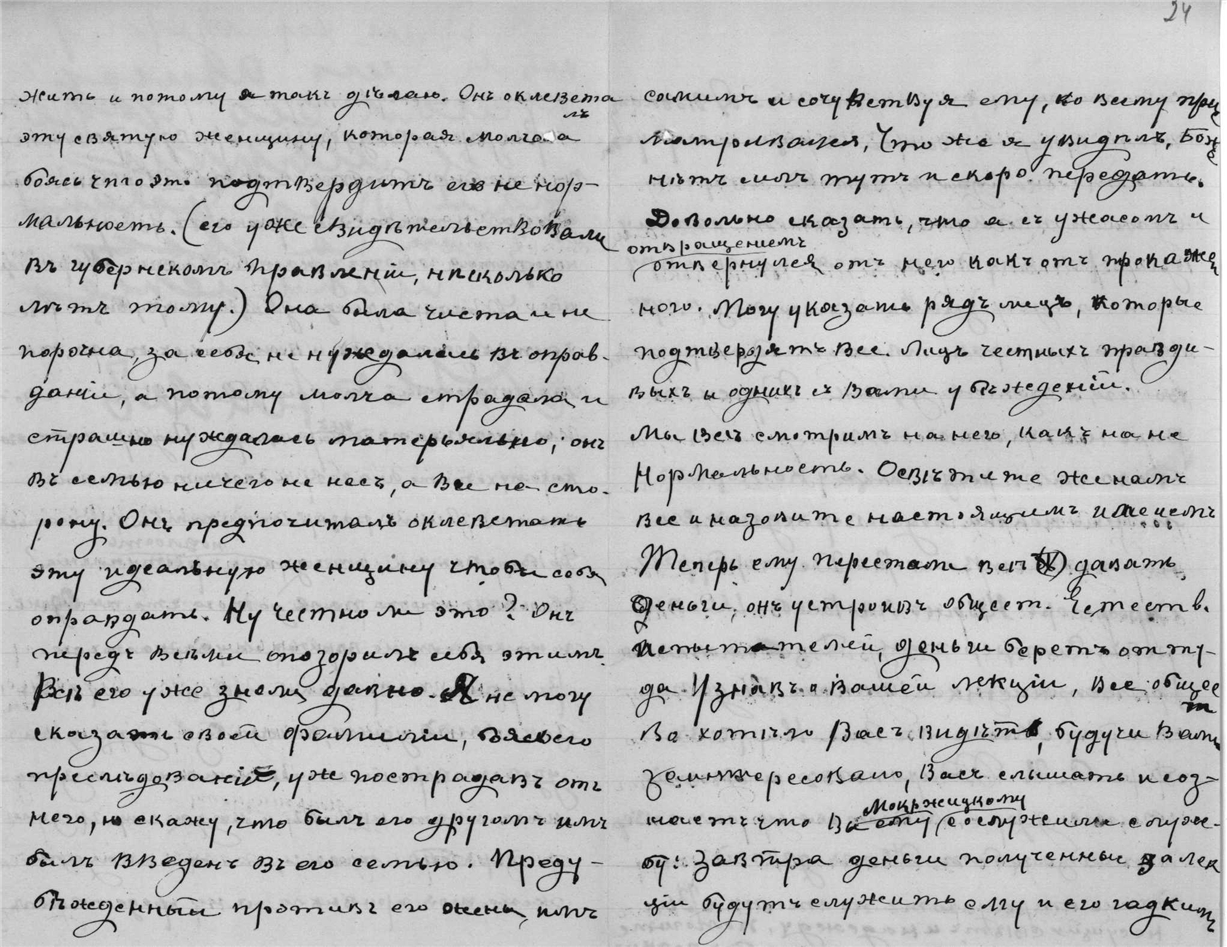 24
жить и потому я такъ дѣлаю. Онъ оклеветалъ
эту святую женщину, которая молчала
боясь что это подтвердитъ его не нор-
мальность. (его уже свидѣтельствовали
въ губернскомъ правленіи, нѣсколько
лѣтъ тому.) Она была чиста и не
порочна, за себя не нуждалась въ оправ-
даніи, а потому молча страдала и
страшно нуждалась матерьяльно, онъ
въ семью ничего не несъ, а все на сто-
рону. Онъ предпочиталъ оклеветать
эту идеальную женщину чтобы себя
оправдать. Ну честно ли это? Онъ
передъ всѣми опозорилъ себя этимъ.
Всѣ его уже знали давно. Я не могу
сказать своей фамиліи, боясь его
преслѣдованій, уже пострадавъ отъ
него, но скажу, что былъ его другомъ имъ
былъ введенъ въ его семью. Преду-
бѣжденный противъ его жены, имъ
самимъ и сочувствуя ему, ко всему при
матривался, Что же я увидѣлъ, Боже
нѣтъ силъ тутъ и скоро передать.
Довольно сказать, что я съ ужасомъ и
отвращеніемъ
отвернулся отъ него какъ отъ прокажен
ного. Могу указать рядъ лицъ, которые
подтвердятъ все. Лицъ честныхъ правди-
выхъ и одникъ съ Вами убѣжденій.
Мы всѣ смотримъ на него, какъ на не
нормальность. Освѣтите же намъ
все и назовите настоящимъ именемъ
Теперь ему перестали всѣ давать
деньги, онъ устроивъ общест. Естеств.
Испытателей, деньги беретъ отту-
да. Узнавъ о Вашей лекціи, все общест
во хотѣло Васъ видѣть, будучи Вами
заинтересовано, Васъ слышать и соз-
наетъ что Вы ему Мокржицкому сослужили служ-
бу: Завтра деньги полученные за лек
ціи будутъ служить ему и его гадкимъ